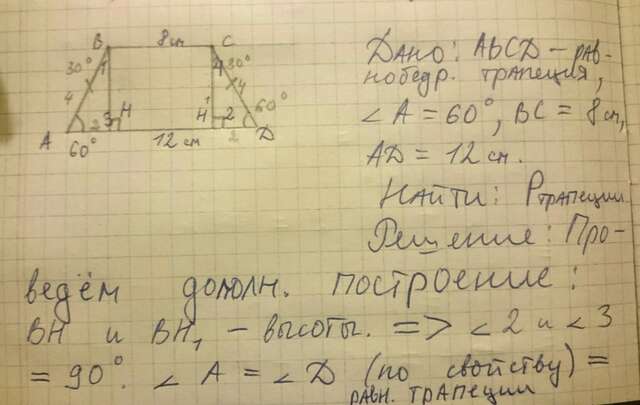 B 8 см C
30° 1 4 30°
4 4
H H1 2 60°
A 2 3 2 D
60° 12 см
Дано: ABCD – рав-
нобедр. трапеция,
∠A = 60°, BC = 8 см,
AD = 12 см.
Найти: Pтрапеции
Решение: Про-
ведём дополн. построение:
BH и BH1 – высоты. => ∠2 и ∠3
= 90°. ∠A = ∠D (по свойству) =
равн. трапеции